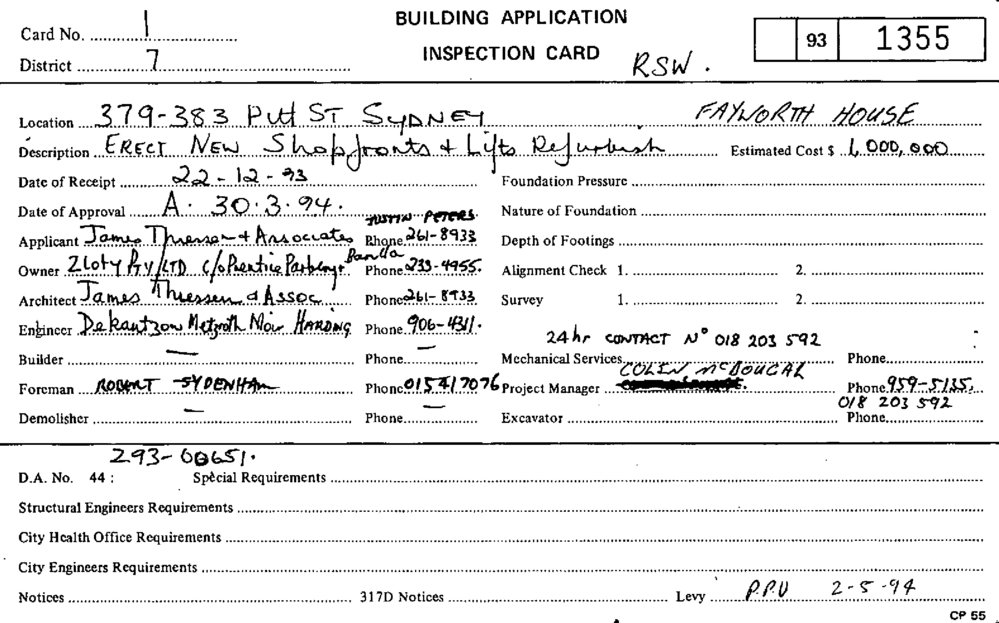 BUILDING APPLICATION
INSPECTION CARD
Card No. 1
District 7
RSW.
93 1355
Location 379-383 Pitt ST SYDNEY FAYWORTH HOUSE
Description ERECT NEW Shopfronts + Lifts Refurbish Estimated Cost $ 1,000,000
Date of Receipt 22-12-93 Foundation Pressure
Date of Approval A. 30.3.94. Nature of Foundation
JUSTIN PETERS
Applicant James Thiessen + Associates Phone 261-8933 Depth of Footings
Owner Zloty Pty/LTD c/o Prentice Parbery + Barilla Phone 233-4955. Alignment Check 1. 2.
Architect James Thiessen & Assoc Phone 261-8933 Survey 1. 2.
Engineer DeKantzow Metzroth Moir HARDING Phone 906-4311.
24hr CONTACT No 018 203 592
Builder — Phone — Mechanical Services Phone
Foreman ROBERT SYDENHAM Phone 015417076 Project Manager COLIN McDOUGAL Phone 959-5135.
018 203 592
Demolisher — Phone — Excavator Phone
293-00651.
D.A. No. 44 : Special Requirements
Structural Engineers Requirements
City Health Office Requirements
City Engineers Requirements
Notices 317D Notices Levy P.P.U 2-5-94
CP 55